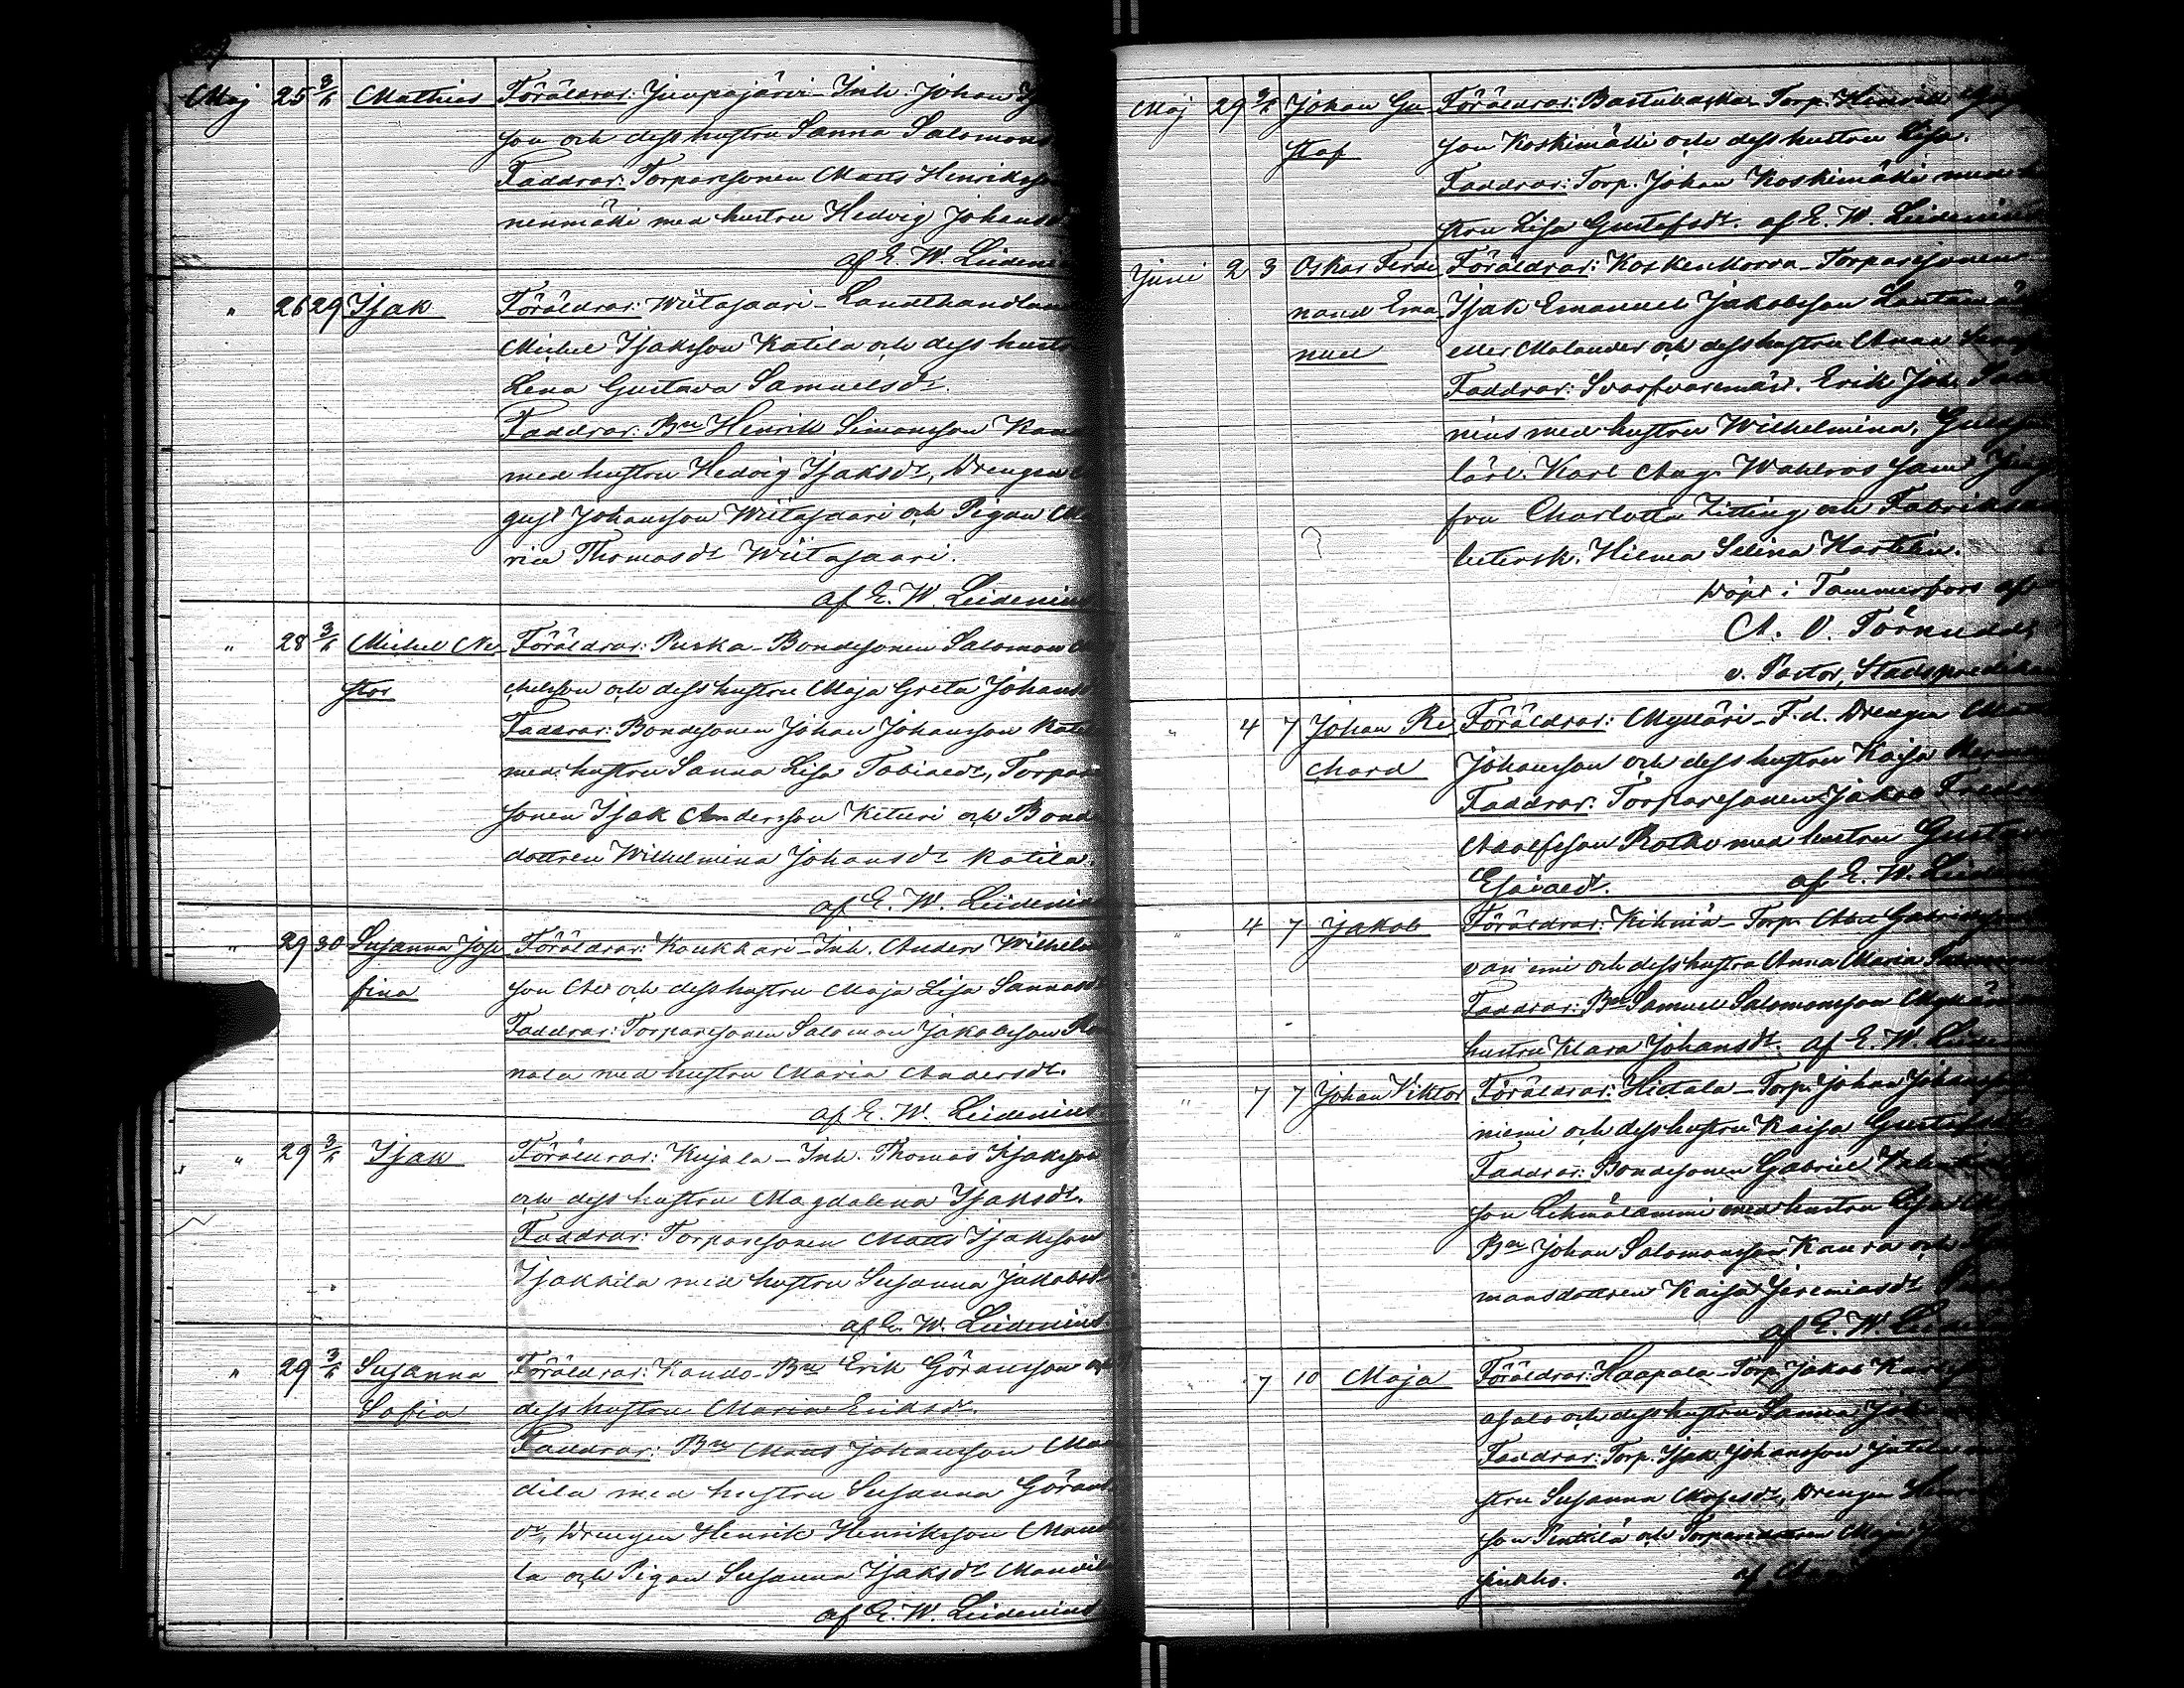 Maj 25 3/6 Mathias Föräldrar: Jumpajärvi - Inh. Johan
son och dess hustru Sanna Salomons
Faddrar: Torparesonen Matts Henriksson
nenmäki med hustru Hedvig Johansdr
af E. W. Lideniu
" 26 29 Isak Föräldrar: Wiitasaari - Landthandlan
Michel Isaksson Katila och dess hust
Lena Gustava Samuelsdr.
Faddrar: Bn Henrik Simonsson
med hustru Hedvig Isaksdr, Drengen
gust Johansson Wiitasaari och Pigan Ma
ria Thomasdr Wiitasaari.
af E. W. Lideniu
" 28 3/6 Michel Ne Föräldrar: Puska - Bondesonen Salomon
stor chelsson och dess hustru Maja Greta Johansd
Faddrar: Bondesonen Johan Johansson Kati
med hustru Sanna Lisa Tobiasdr, Torpare
sonen Isak Andersson Kituri och Bonde
dottren Wilhelmina Johansdr Katila.
af E. W. Lideniu
" 29 30 Susanna Jose Föräldrar: Koukkari - Inh. Anders Wilhelm
fina son Ala och dess hustru Maja Lisa Sannasd
Faddrar: Torparesonen Salomon Jakobsson
nala med hustru Maria Andersdr.
af E. W. Lidenius
" 29 3/6 Isak Föräldrar: Kujala - Inh. Thomas Isaksson
och dess hustru Magdalena Isaksdr.
Faddrar: Torparesonen Matts Isaksson
Isakkila med hustru Susanna Jakobsdr
af E. W. Lidenius.
" 29 3/6 Susanna Föräldrar: Kando - Bn Erik Göransson och
Sofia dess hustru Maria Eriksdr.
Faddrar: Bn Matts Johansson Man
dila med hustru Susanna Görans
dr, Drengen Henrik Henriksson Mandi
la och Pigan Susanna Isaksdr Mandil
af E. W. Lidenius
Maj 29 3/6 Johan Gu Föräldrar: Bastubacka Torp. Henrik
staf son Koskimäki och dess hustru Lisa.
Faddrar: Torp. Johan Koskimäki med hu
stru Lisa Gustafsdr. af E. W. Lideniu
Juni 2 3 Oskar Ferdi Föräldrar: Koskenkorva - Torparesonen
nand Ema Isak Emanuel Jakobsson Lantamä
nuel eller Malander och dess hustru Anna
Faddrar: Svarfvaremäst. Erik Joh.
nius med hustru Wilhelmina, Guldsm
lärl. Karl Aug. Wahlros samt Jung
fru Charlotta Zitting och Fabriksar
betersk. Hilma Selina Hastelin.
Döpt i Tammerfors af
A. O. Törnudd,
v. Pastor, Stadspredikan
" 4 7 Johan Ri Föräldrar: Mylläri - F.d. Drengen
chard Johansson och dess hustru Kajsa Herman
Faddrar: Torparesonen Jakob Fredrik
Adolfsson Rotko med hustru Gustava
Esaiaedr. af E. W. Lide
" 4 7 Jakob Föräldrar: Kihniä - Torp.
vaniemi och dess hustru Anna Maria
Faddrar: Bn Samuel Salomonsson Mykrä
hustru Klara Johansdr. af E. W. Lide
" 7 7 Johan Viktor Föräldrar: Hietala - Torp. Johan Johansson
niemi och dess hustru Kaisa Gustafsdr
Faddrar: Bondesonen Gabriel Valentin
son Lehmälammi med hustru Lisa
Bn Johan Salomonsson Kaura och
mansdottren Kaisa Jeremiasdr
af E. W. Li
7 10 Maja Föräldrar: Haapala - Torp. Jakob Karls
asalo och dess hustru Sanna Joh
Faddrar: Torp. Isak Johansson
stru Susanna Mosisdr, Drengen Hen
son Penttilä och Torparedottren Maja
sinkko. af